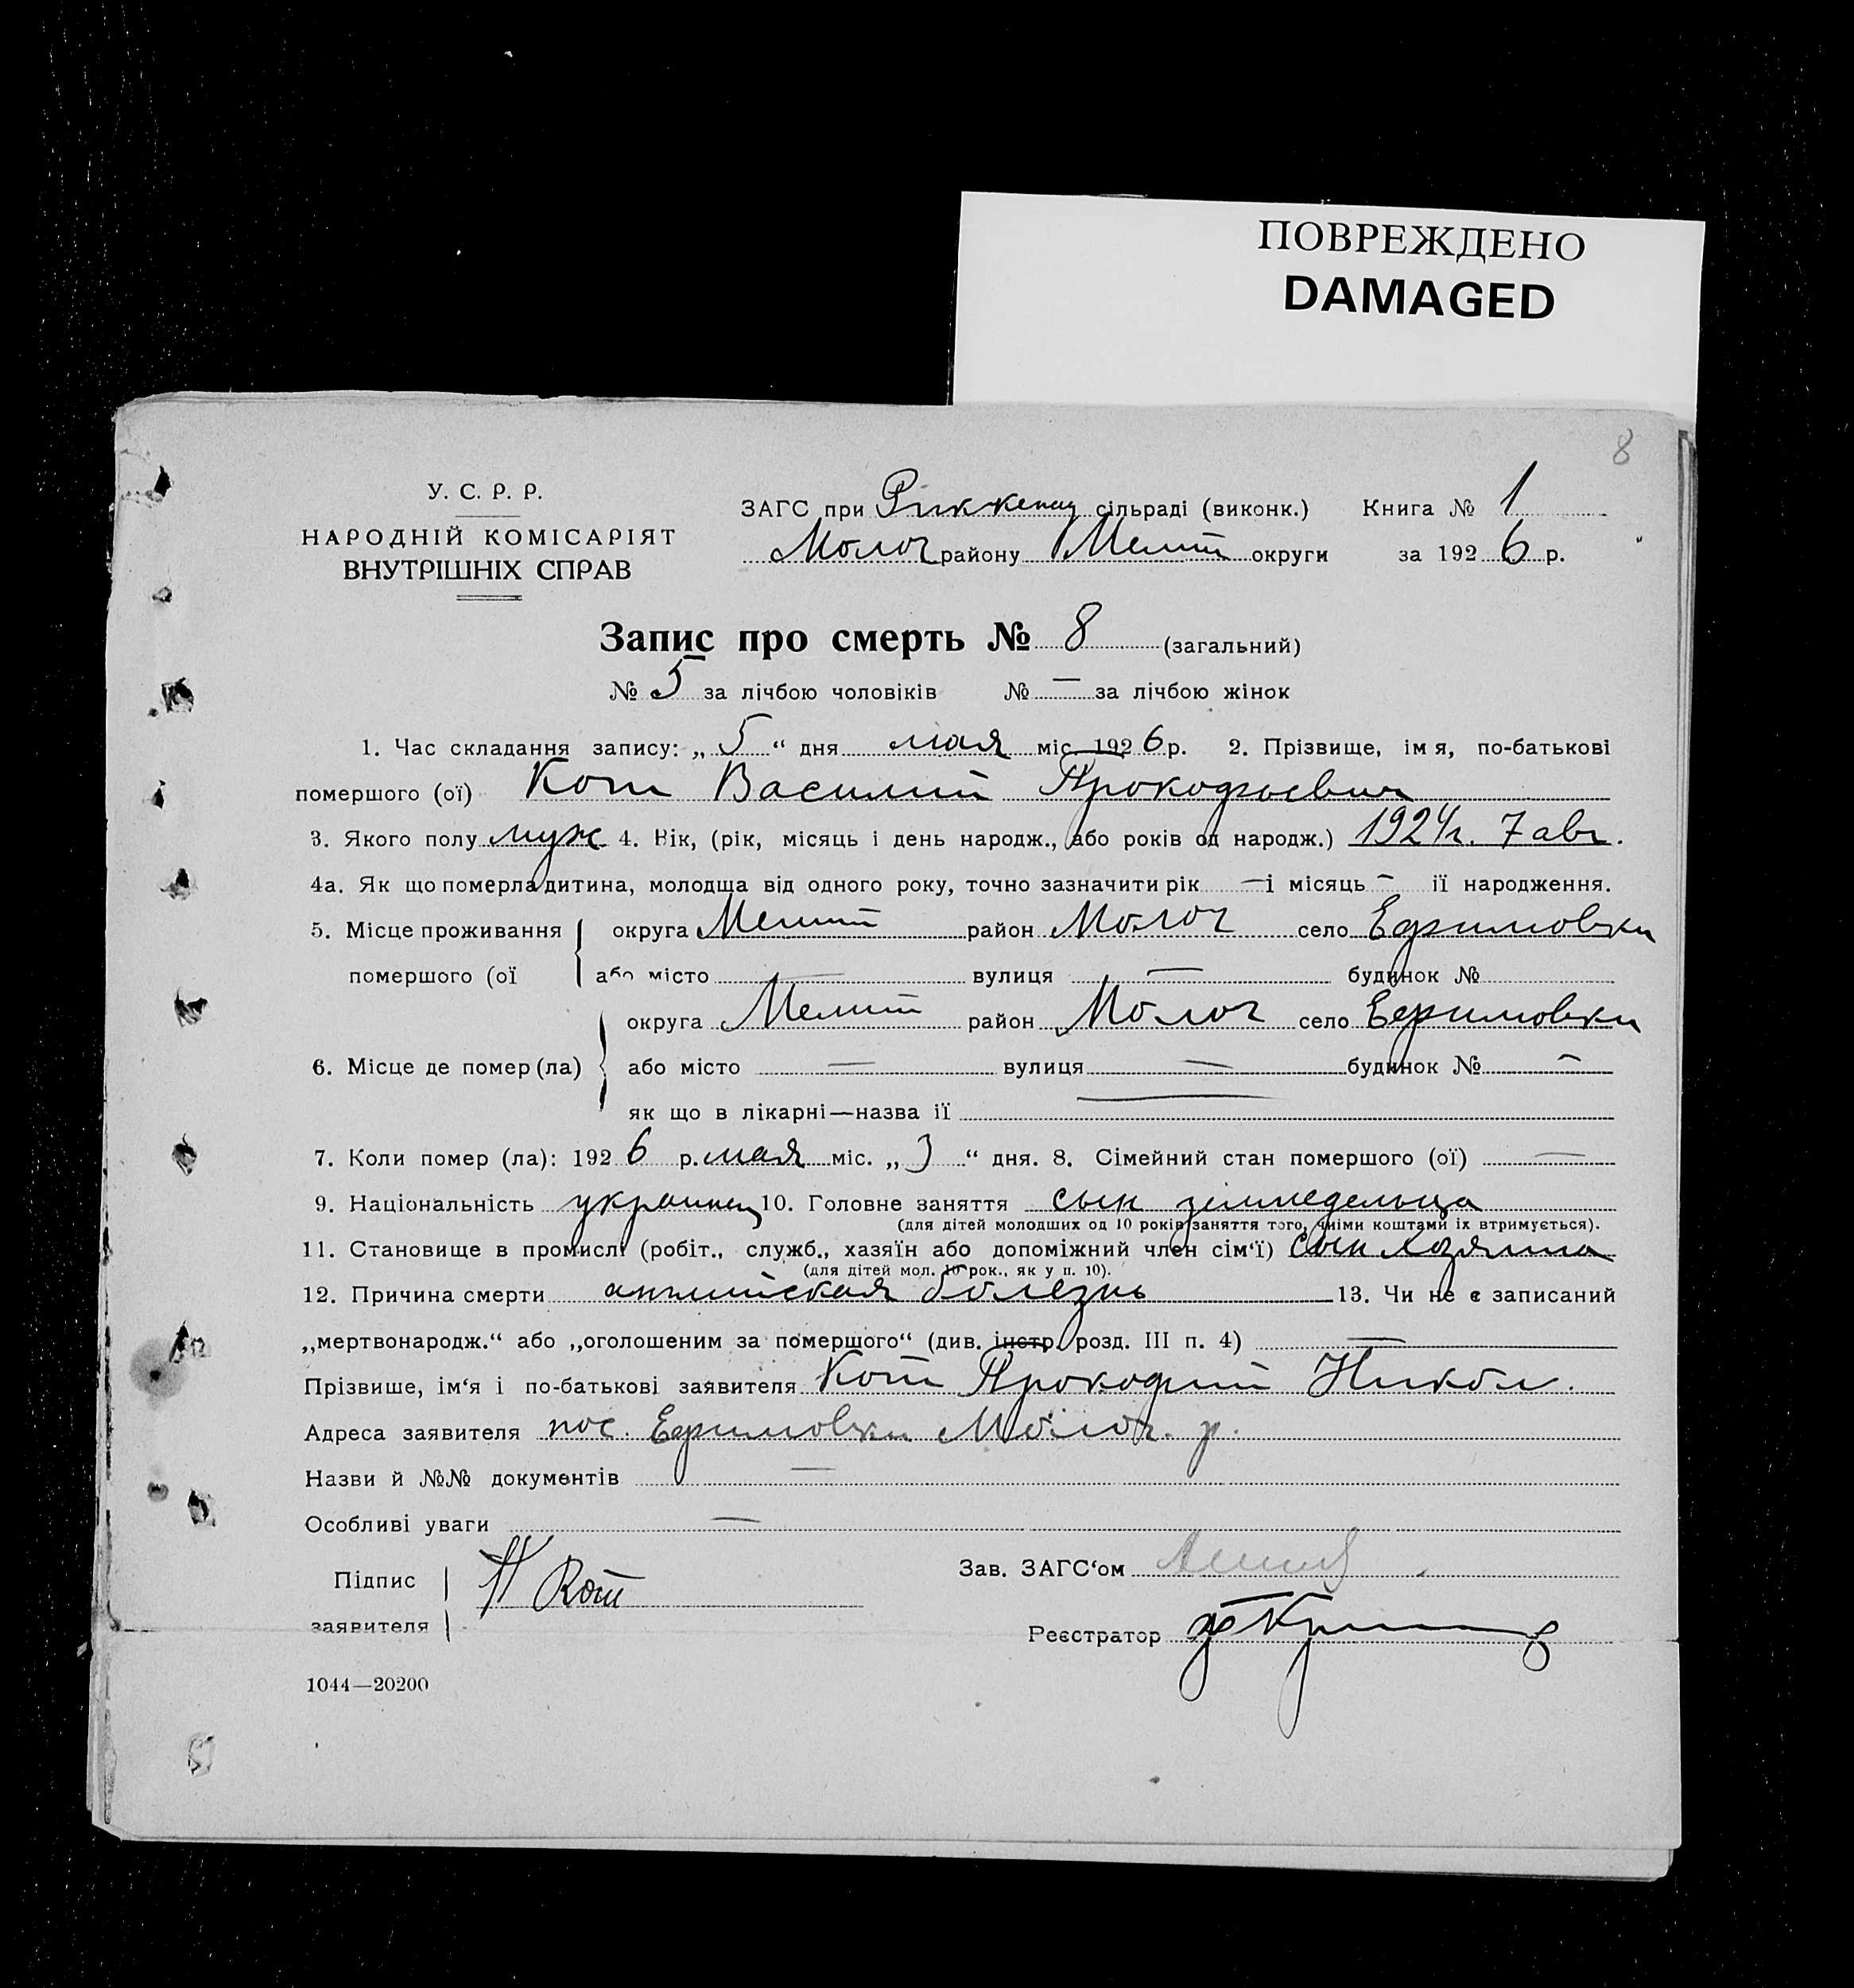 ПОВРЕЖДЕНО
DAMAGED
8
У. С. Р. Р.
НАРОДНІЙ КОМІСАРІЯТ
ВНУТРІШНІХ СПРАВ
ЗАГС при Риккенау сільраді (виконк.) Книга № 1
Молоч району Мелит округи за 1926 р.
Запис про смерть № 8 (загальний)
№ 5 за лічбою чоловіків № — за лічбою жінок
1. Час складання запису: „5“ дня мая міс. 1926 р. 2. Прізвище, імя, по-батькові
помершого (ої) Кот Василий Прокофьевич
3. Якого полу муж 4. Вік, (рік, місяць і день народж., або років од народж.) 1924 г. 7 авг.
4а. Як що померла дитина, молодща від одного року, точно зазначити рік — і місяць - її народження.
5. Місце проживання округа Мелит район Молоч село Ефимовки
помершого (ої або місто — вулиця — будинок №
округа Мелит район Молоч село Ефимовки
6. Місце де помер (ла) або місто — вулиця — будинок № —
як що в лікарні—назва її —
7. Коли помер (ла): 1926 р. мая міс. „3“ дня. 8. Сімейний стан помершого (ої) —
9. Національність украинец 10. Головне заняття сын земледельца
(для дітей молодших од 10 років заняття того, чиїми коштами їх втримується).
11. Становище в промислі (робіт., служб., хазяїн або допоміжний член сім'ї) сын хозяина
(для дітей мол. 10 рок., як у п. 10).
12. Причина смерти английская болезнь 13. Чи не є записаний
„мертвонародж.“ або „оголошеним за помершого“ (див. інстр. розд. III п. 4) —
Прізвише, ім'я і по-батькові заявителя Кот Прокофий Никол.
Адреса заявителя пос. Ефимовки Молоч. р.
Назви й №№ документів —
Особливі уваги —
Підпис
заявителя П Кот
Зав. ЗАГС'ом
Реєстратор
1044—20200